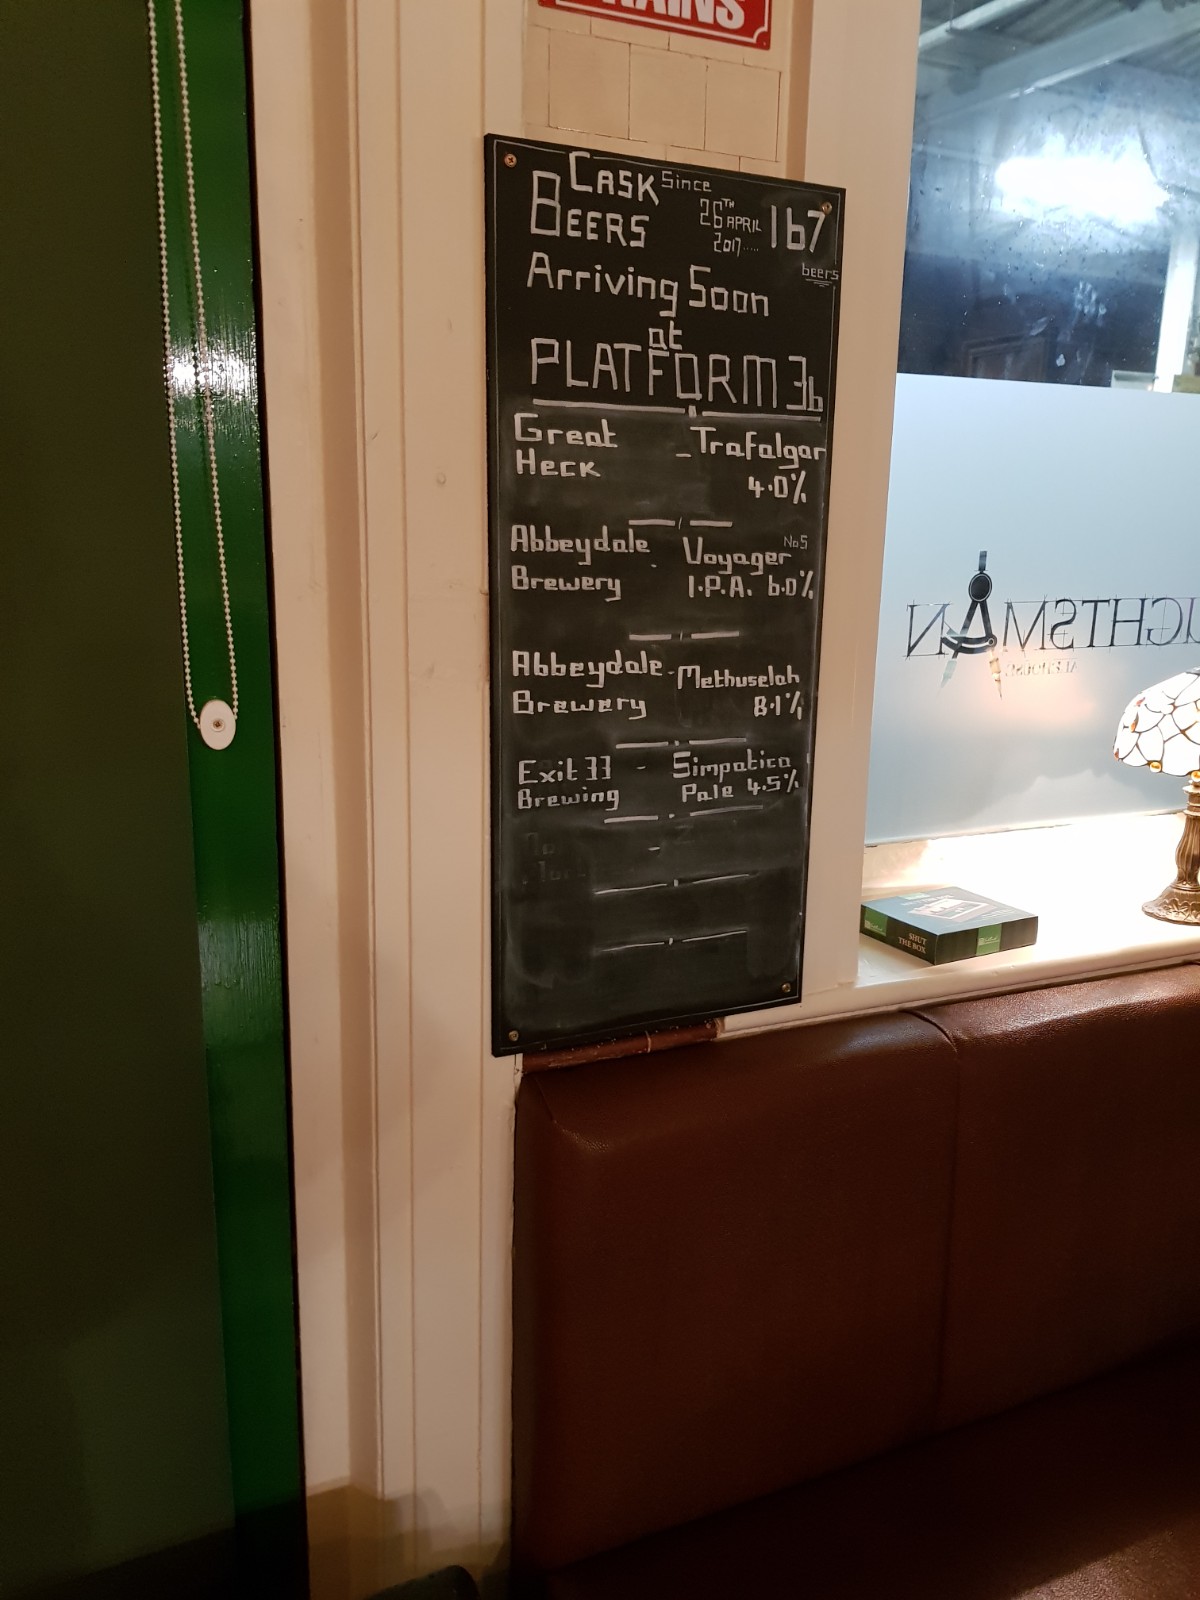 TRAINS
CASK
BEERS
Since
26TH APRIL
2017.....
167
beers
Arriving Soon
at
PLATFORM 3b
Great
Heck
- Trafalgar
4.0%
Abbeydale
Brewery
- Voyager No5
I.P.A. 6.0%
Abbeydale
Brewery
- Methuselah
8.1%
Exit 33
Brewing
- Simpatico
Pale 4.5%
-
UGHTSMAN
ALEHOUSE
SHUT
THE BOX